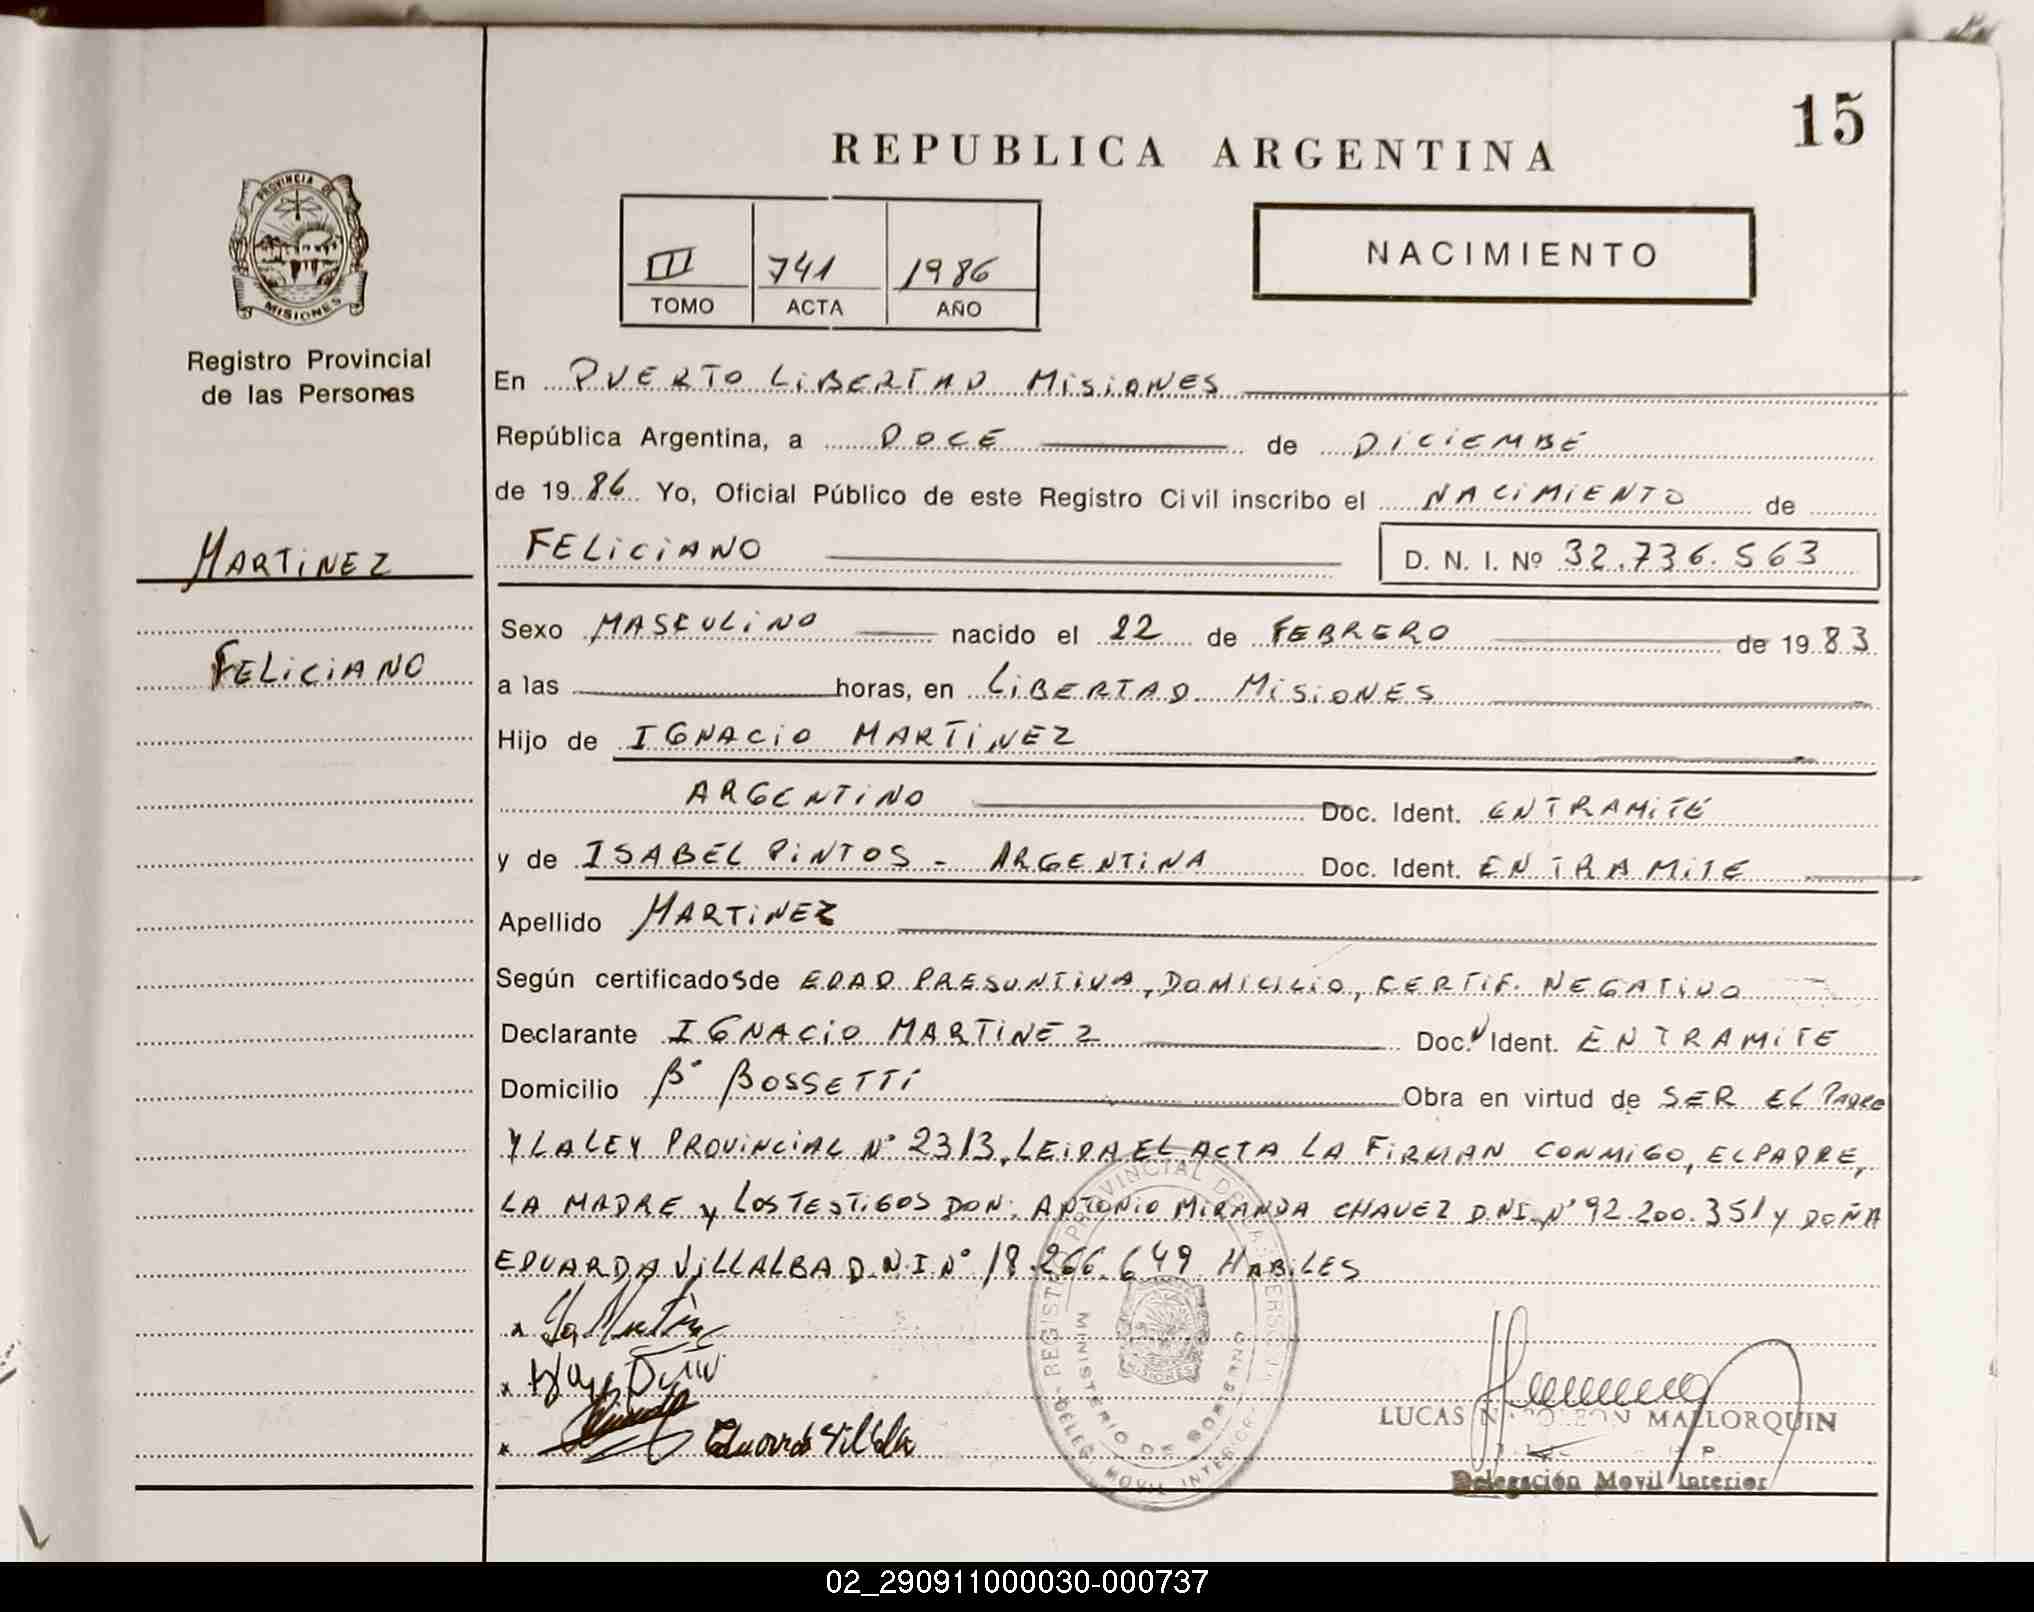 15
REPUBLICA ARGENTINA
PROVINCIA DE
MISIONES
III 741 1986
TOMO ACTA AÑO
NACIMIENTO
Registro Provincial
de las Personas
En PUERTO LIBERTAD MISIONES
República Argentina, a DOCE de DICIEMBE
de 1986 Yo, Oficial Público de este Registro Civil inscribo el NACIMIENTO de
MARTINEZ
FELICIANO D. N. I. Nº 32.736.563
Sexo MASCULINO nacido el 22 de FEBRERO de 1983
FELICIANO
a las horas, en LIBERTAD MISIONES
Hijo de IGNACIO MARTINEZ
ARGENTINO Doc. Ident. EN TRAMITE
y de ISABEL PINTOS - ARGENTINA Doc. Ident. EN TRAMITE
Apellido MARTINEZ
Según certificados de EDAD PRESUNTIVA, DOMICILIO, CERTIF. NEGATIVO
Declarante IGNACIO MARTINEZ Doc. Ident. EN TRAMITE
Domicilio Bº BOSSETTI Obra en virtud de SER EL PADRE
Y LA LEY PROVINCIAL Nº 2313, LEIDA EL ACTA LA FIRMAN CONMIGO, EL PADRE,
LA MADRE y LOS TESTIGOS DON: ANTONIO MIRANDA CHAVEZ D.N.I. Nº 92.200.351 y DOÑA
EDUARDA VILLALBA D.N.I Nº 18.266.649 HABILES
REGISTRO PROVINCIAL DE LAS PERSONAS
MINISTERIO DE GOBIERNO
MISIONES
DELEG. MOVIL INTERIOR
Eduarda Villalba
LUCAS NAPOLEON MALLORQUIN
Delegación Movil Interior
02_290911000030-000737